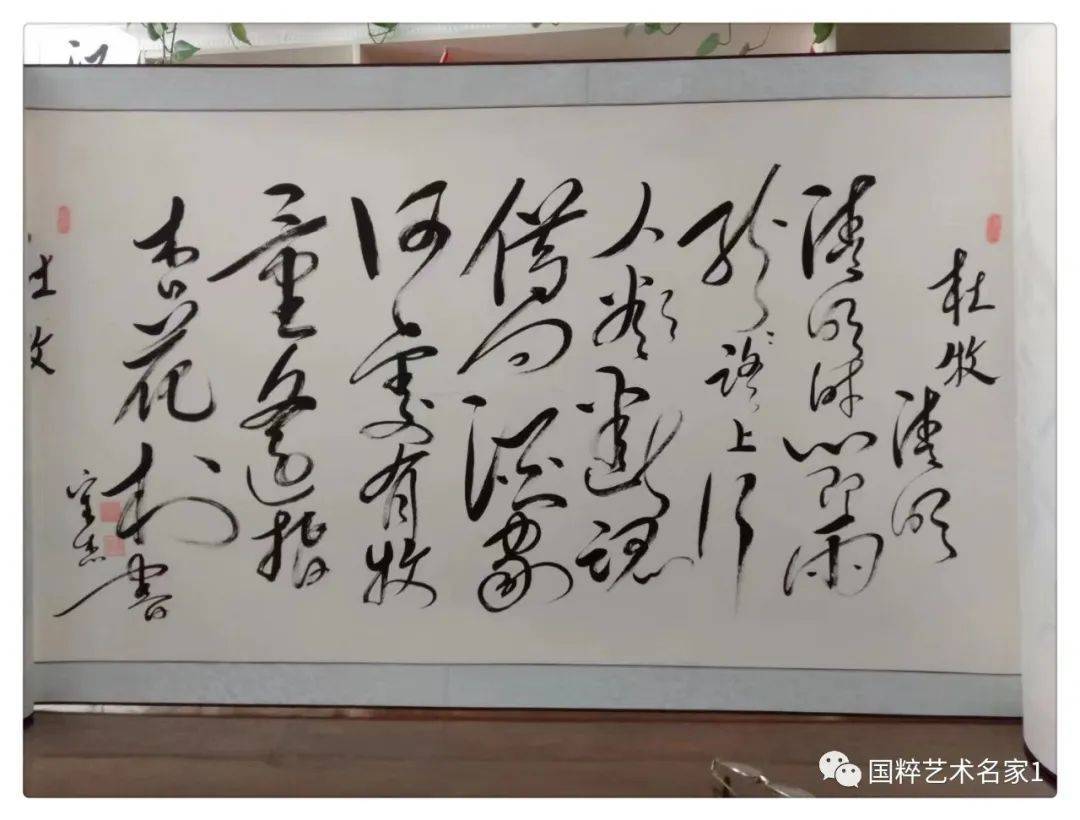 杜牧
清明
清明时节雨
纷纷路上行
人欲断魂
借问酒家
何處有牧
童遥指
杏花村
书
士文
国粹艺术名家1